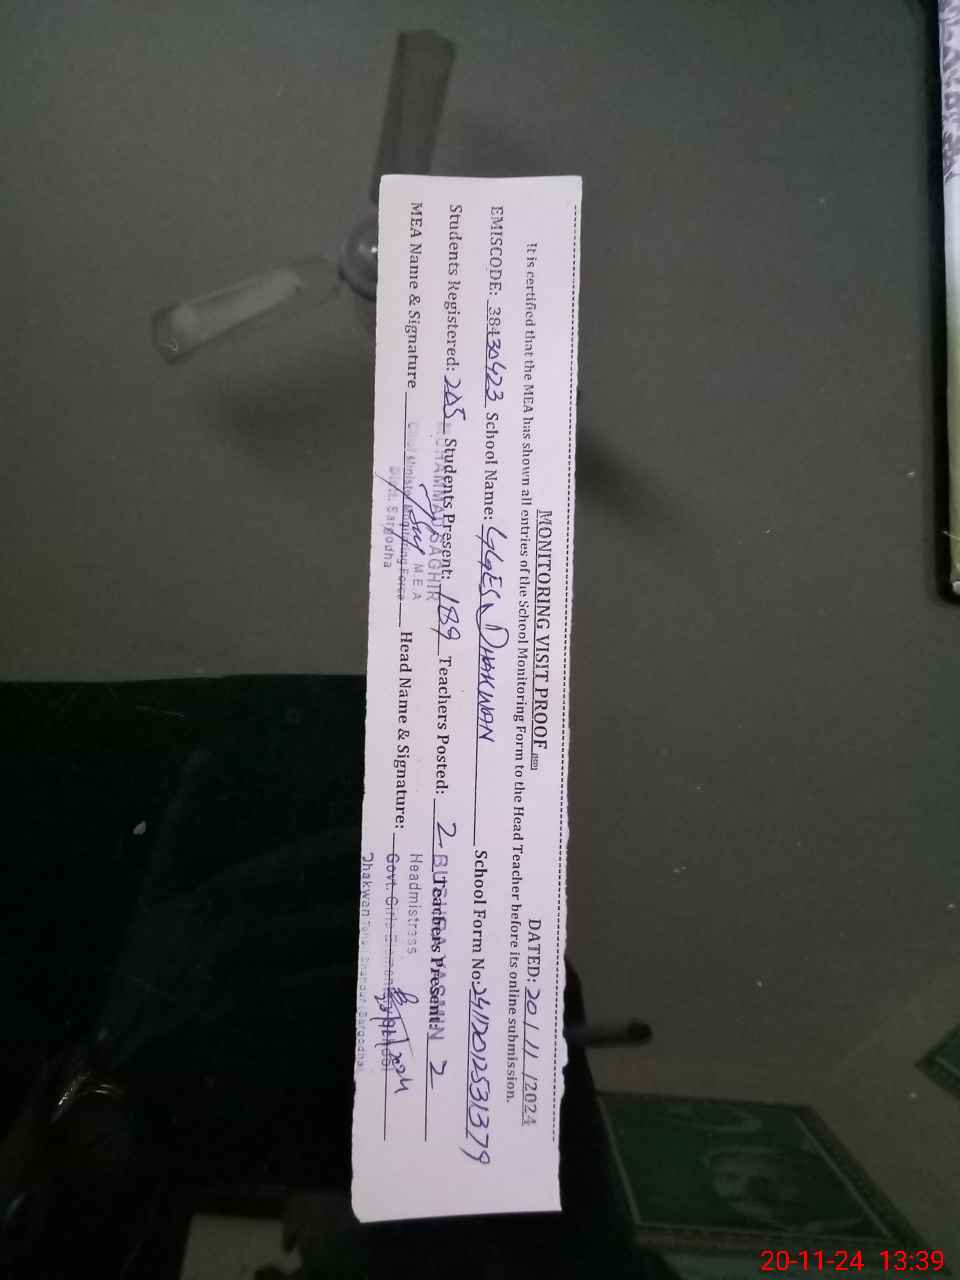 MONITORING VISIT PROOF
DATED: 20/11/2024
It is certified that the MEA has shown all entries of the School Monitoring Form to the Head Teacher before its online submission.
EMISCODE: 38430423 School Name: GGES, DHAKWAN School Form No: 24112012531379
Students Registered: 205 Students Present: 189 Teachers Posted: 2 Teachers Present: 2
MUHAMMAD SAGHIR
M E A
Chief Minister Monitoring Force
Distt. Sargodha
MEA Name & Signature Head Name & Signature:
BUSHRA YASMIN
Headmistress
Govt. Girls Elementary School
Dhakwan Tehsil Shahpur (Sargodha)
20/11/2024
20-11-24 13:39